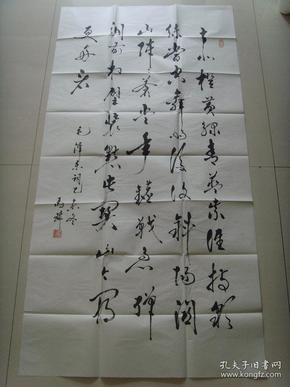 赤橙黄绿青蓝紫谁持彩
练当空舞雨后复斜阳关
山阵阵苍当年鏖战急弹
洞前村壁装点此关山今朝
更好看
毛泽东词
孔夫子旧书网